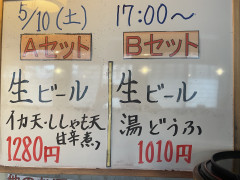 5/10(土) 17:00～
Aセット
生ビール
イカ天・ししゃも天
甘辛煮
1280円
Bセット
生ビール
湯どうふ
1010円